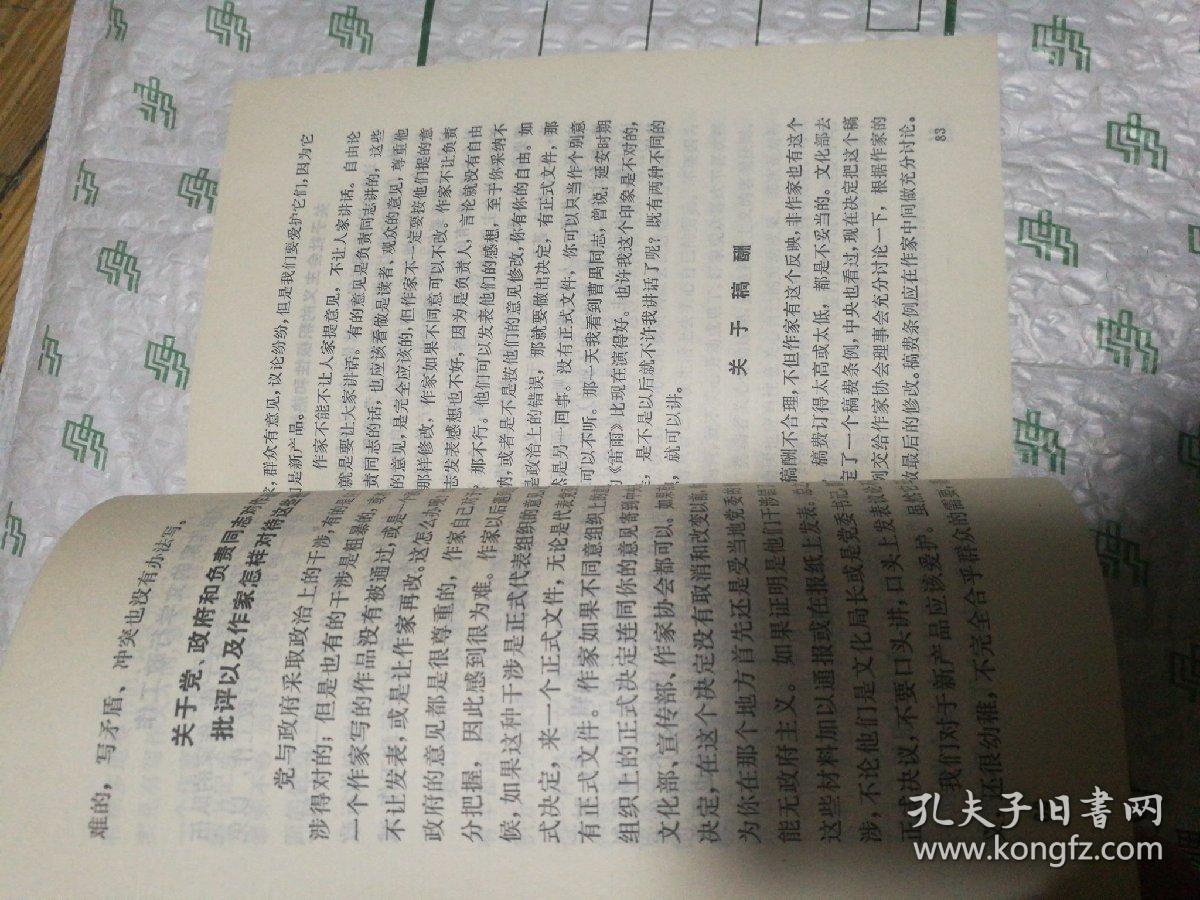 难的，写矛盾、冲突也没有办法写。
关于党、政府和负责同志对作
批评以及作家怎样对待这些
党与政府采取政治上的干涉，有的是
涉得对的；但是也有的干涉是粗暴的，
一个作家写的作品没有被通过，或是
不让发表，或是让作家再改。这怎么办呢
政府的意见都是很尊重的，作家自己
分把握，因此感到很为难。作家以后遇到
候，如果这种干涉是正式代表组织的意见
式决定，来一个正式文件，无论是代表党
有正式文件。作家如果不同意组织上的意
组织上的正式决定连同你的意见寄到中
文化部、宣传部、作家协会都可以。如果
决定，在这个决定没有取消和改变以前，
为你在那个地方首先还是受当地党委的
能无政府主义。如果证明是他们干涉
这些材料加以通报或在报纸上发表。
涉，不论他们是文化局长或是党委书记，
正式决议，不要口头讲，口头上发表议论
我们对于新产品应该爱护。虽然
还很幼稚，不完全合乎群众的需要，
家，群众有意见，议论纷纷，但是我们要爱护它们，因为它
们是新产品。
作家不能不让人家提意见，不让人家讲话。自由论
就是要让大家讲话。有的意见是负责同志讲的，这些
责同志的话，也应该看做是读者、观众的意见，尊重他
的意见，是完全应该的，但作家不一定要按他们提的意
那样修改，作家如果不同意可以不改。作家不让负责
志发表感想也不好，因为是负责人，言论就没有自由
，那不行。他们可以发表他们的感想，至于你采纳不
纳，或者是不是按他们的意见修改，你有你的自由。如
是政治上的错误，那就要做出决定，有正式文件，那
然是另一回事。没有正式文件，你可以只当作个别意
可以不听。那一天我看到曹禺同志，曾说，延安时期
《雷雨》比现在演得好。也许我这个印象是不对的，
是不是以后就不许我讲话了呢？既有两种不同的
，就可以讲。
关于稿酬
稿酬不合理，不但作家有这个反映，非作家也有这个
稿费订得太高或太低，都是不妥当的。文化部去
定了一个稿费条例，中央也看过，现在决定把这个稿
列交给作家协会理事会充分讨论一下，根据作家的
做最后的修改。稿费条例应在作家中间做充分讨论。
83
孔夫子旧书网
www.kongfz.com